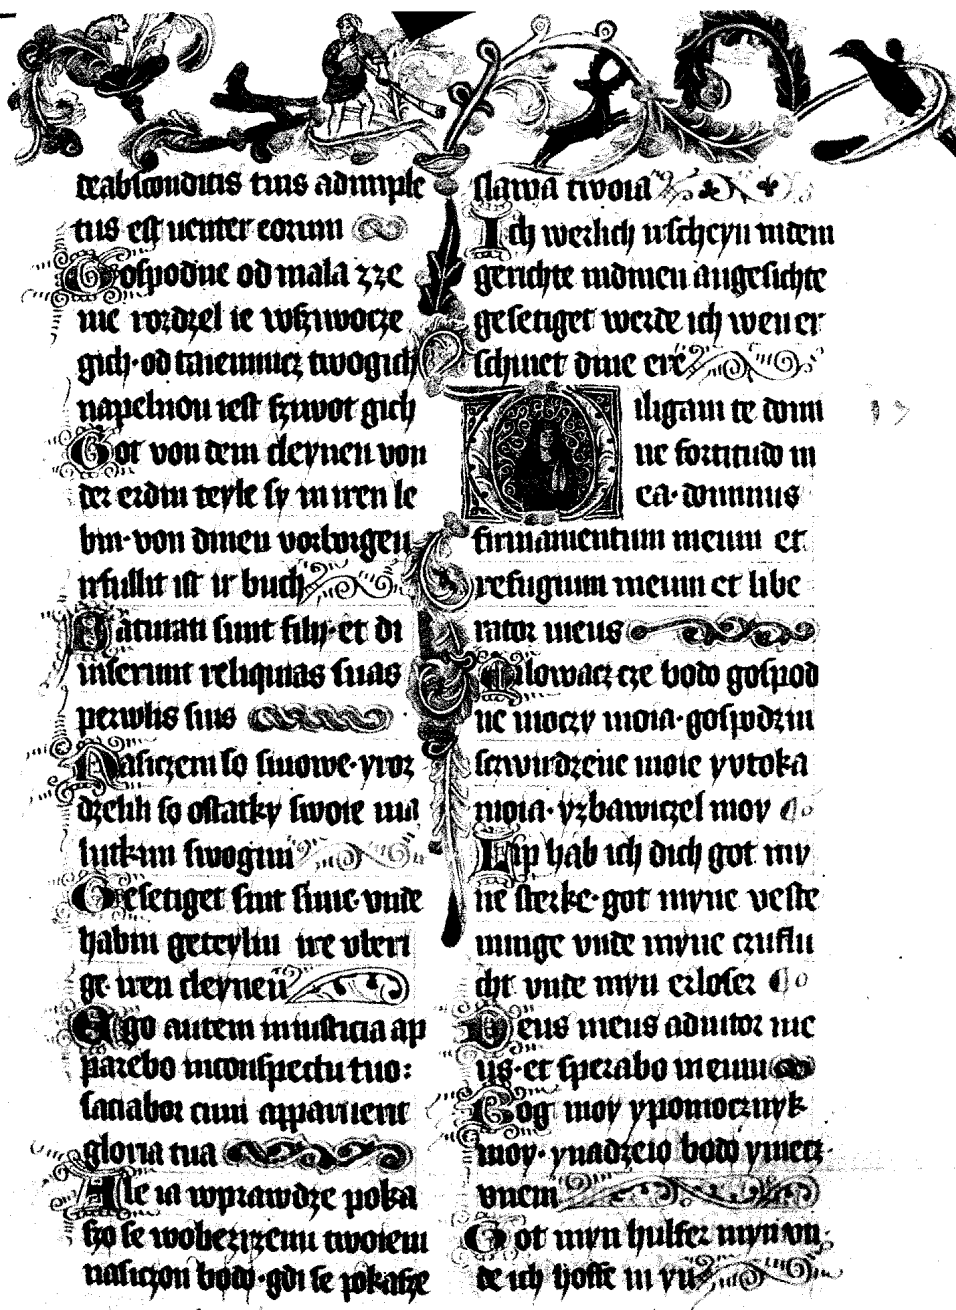 de absconditis tuis adimple
tus est uenter eorum
Gospodne od mala zze
me rozdzel ie wßiwocze
gich· od taiemnicz twogich
napelnon iest szywot gich
Got von dem cleynen von
der erdin teyle sy in iren le
bin· von dinen vorborgen
irfullit ist ir buch
Saturati sunt filii· et di
miserunt reliquias suas
parvulis suis
Nasiczeni so sinowe· y roz
dzelili so ostatky swoie ma
lutkim swogim
Gesetiget sint sune vnde
habin geteylin ire vberi
ge iren cleynen
Ego autem in iusticia ap
parebo in conspectu tuo:
saciabor cum apparuerit
gloria tua
Ale ia wprawdze poka
szo se wobezrzenu twoiem
nasiczon bodo· gdi se pokasze
slawa twoia
Ich werlich irscheyn in dem
gerichte in dinen angesichte
gesetiget werde ich wen er
schinet dine ere
Diligam te domi
ne fortitudo m
ea· dominus
firmamentum meum et
refugium meum et libe
rator meus
Milowacz cze bodo gospod
ne moczy moia· gospodzin
sczwirdzene moie y vtoka
moia· y zbawiczel moy
Lip hab ich dich got my
ne sterke· got myne veste
nunge vnde myne czuflu
cht vnde myn erloser
Deus meus adiutor me
us· et sperabo in eum
Bog moy y pomocznyk
moy· y nadzeio bodo ymecz
wnem
Got myn hulfer myn vn
de ich hoffe in yn